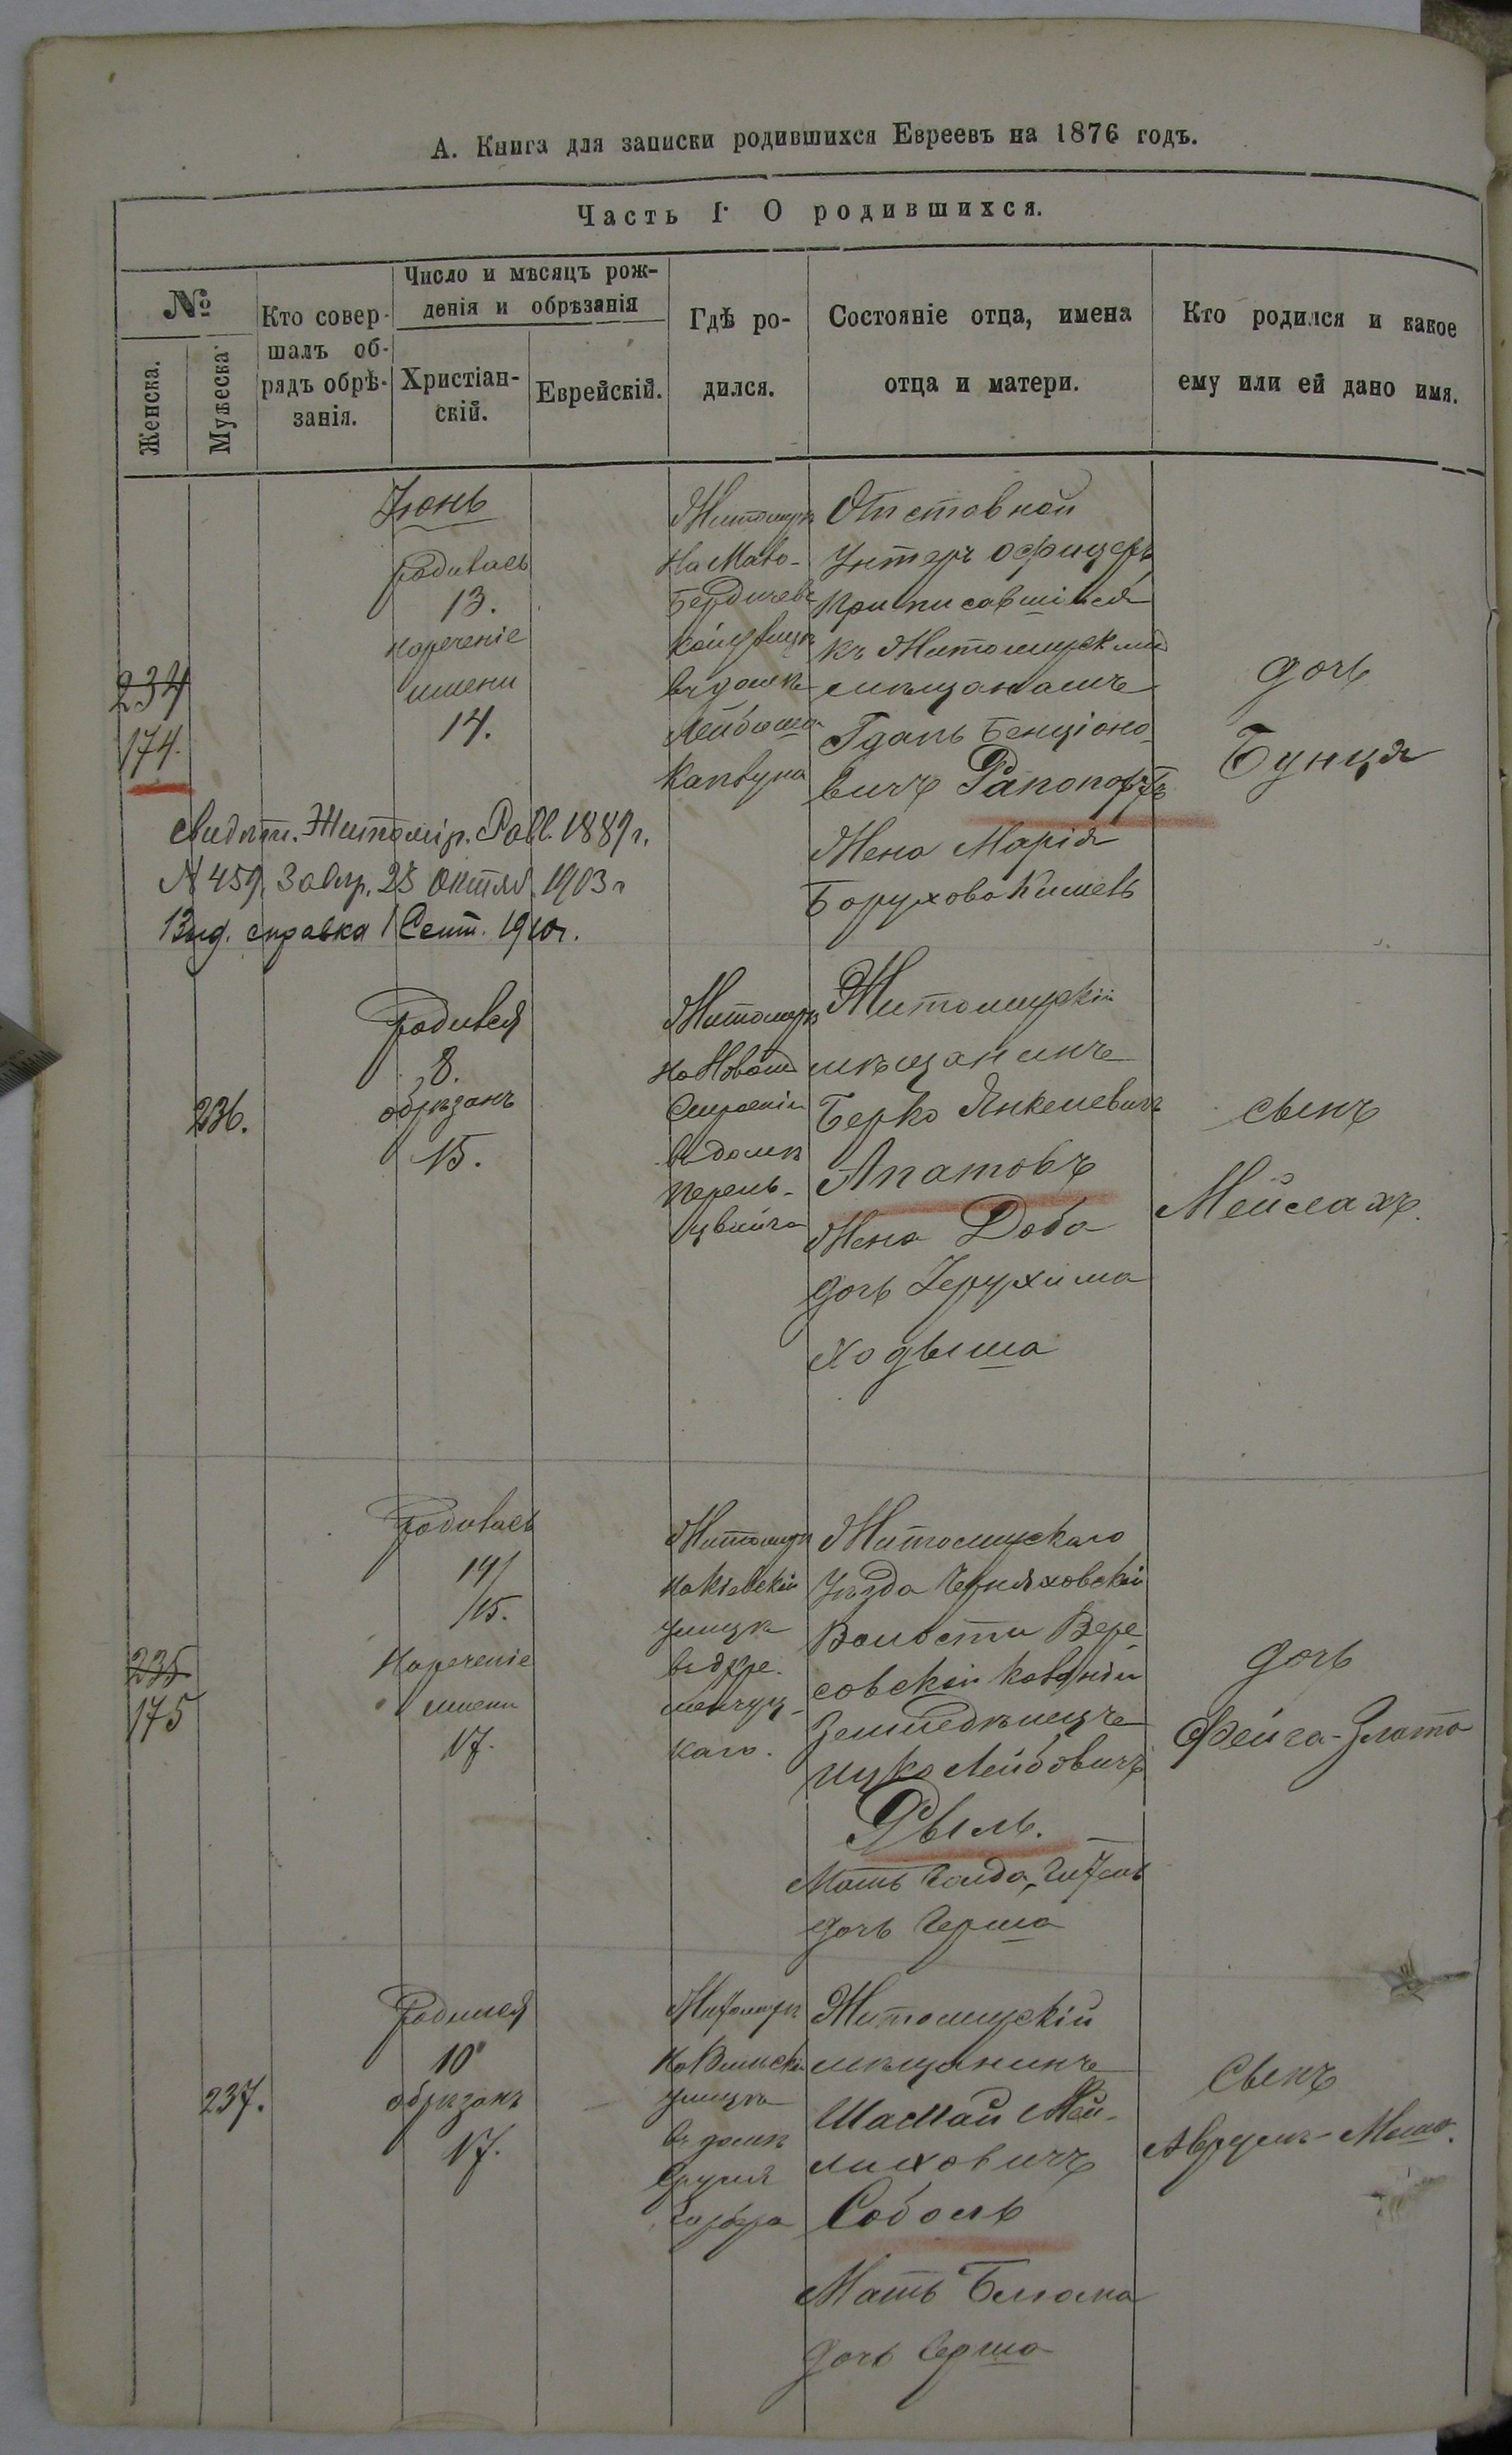 А. Книга для записки родившихся Евреевъ на 1876 годъ.
Часть I. О родившихся.
№
Женска.
Мужеска
Кто совер-
шалъ об-
рядъ обрѣ-
занія.
Число и мѣсяцъ рож-
денія и обрѣзанія
Христіан-
скій.
Еврейскій.
Гдѣ ро-
дился.
Состояніе отца, имена
отца и матери.
Кто родился и какое
ему или ей дано имя.
Іюнь
234
174.
родилась
13.
нареченіе
имени
14.
Житомиръ
На Мало-
Бердичевс
кой улицѣ
въ домѣ
Лейбоша
Каплуна
Отставной
Унтеръ офицеръ
приписавшійся
къ Житомирскимъ
мѣщанамъ
Гдаль Бенціоно
вичъ Рапопортъ
Жена Марія
Борухова
дочь
Бунця
свидѣт. Житомір. Равв. 1889 г.
N 459. Завѣр. 25 Октяб. 1903 г
Выд. справка 1 Сент. 1910 г.
236.
родился
8.
обрѣзанъ
15.
Житомиръ
на Новомъ
Строеніи
въ домѣ
перель-
цвейга
Житомирскій
мѣщанинъ
Берко Янкелевичъ
Апатовъ
Жена Доба
дочь Іерухима
Ходыша
сынъ
Мейлахъ.
235
175
родилась
14/
15.
Нареченіе
имени
17.
Житомиръ
на Кіевской
улицѣ
въ д Кре-
менчуц-
каго.
Житомирскаго
Уѣзда Черняховской
Волости Вере
совской колоніи
Земледѣлецъ
Ицко Лейбовичъ
Рыль.
Мать Голда, Гитель
дочь Герша
дочь
Фейга-Злата
237.
родился
10
обрѣзанъ
17.
Житомиръ
На Вильской
улицѣ
въ домѣ
Сруля
Житомирскій
мѣщанинъ
Шамай Мей-
лиховичъ
Соболь
Мать Блюма
дочь Герша
Сынъ
Аврумъ-Мошо.